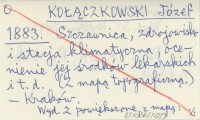 KOŁĄCZKOWSKI Józef
1883. Szczawnica, zdrojowisko
i stacja klimatyczna, oce-
nienie jej środków lekarskich
i t. d. (z mapą topograficzną.)
— Kraków.
Wyd. 2 powiększone, z mapą: